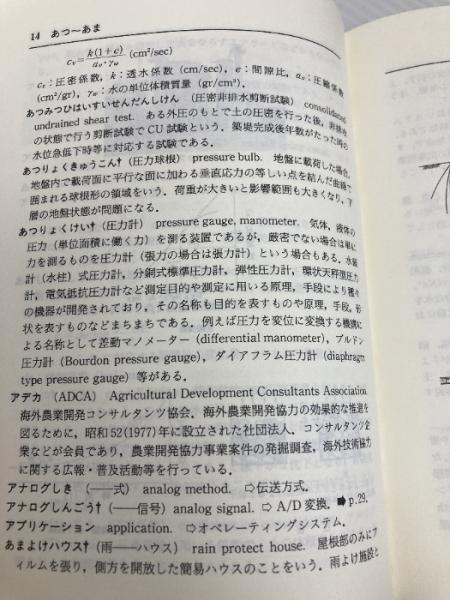 14 あつ～あま
c_v = k(1+e) / a_v・γ_w (cm²/sec)
c_v：圧密係数，k：透水係数 (cm/sec)，e：間隙比，a_v：圧縮係数
(cm²/gr)，γ_w：水の単位体積質量 (gr/cm³)．
あつみつひはいすいせんだんしけん （圧密非排水剪断試験） consolidated
undrained shear test. ある外圧のもとで土の圧密を行った後，非排水
の状態で行う剪断試験で CU 試験という．築堤完成後年数がたった時の
水位急低下時等に対応する試験である．
あつりょくきゅうこん† （圧力球根） pressure bulb. 地盤に載荷した場合，
地盤内で載荷面に平行な面に加わる垂直応力の等しい点を結んだ曲線で
囲まれる球根形の領域をいう．荷重が大きいと影響範囲も大きくなり，下
層の地盤状態が問題になる．
あつりょくけい† （圧力計） pressure gauge, manometer. 気体，液体の
圧力（単位面積に働く力）を測る装置であるが，厳密でない場合は単に
力を測るものを圧力計（張力の場合は張力計）という場合もある．水銀
計（水柱）式圧力計，分銅式標準圧力計，弾性圧力計，環状天秤型圧力
計，電気抵抗圧力計など測定目的や測定に用いる原理，手段により種々
の機器が開発されており，その名称も目的を表すものや原理，手段，形
状を表すものなどまちまちである．例えば圧力を変位に変換する機構に
よる名称として差動マノメーター (differential manometer)，ブルドン
圧力計 (Bourdon pressure gauge)，ダイアフラム圧力計 (diaphragm
type pressure gauge) 等がある．
アデカ (ADCA) Agricultural Development Consultants Association
海外農業開発コンサルタンツ協会．海外農業開発協力の効果的な推進を
図るために，昭和 52(1977) 年に設立された社団法人．コンサルタンツ企
業などが会員であり，農業開発協力事業案件の発掘調査，海外技術協力
に関する広報・普及活動等を行っている．
アナログしき （――式） analog method. ⇨伝送方式．
アナログしんごう† （――信号） analog signal. ⇨ A/D 変換．➡p.29.
アプリケーション application. ⇨オペレーティングシステム．
あまよけハウス† （雨――ハウス） rain protect house. 屋根部のみにフ
ィルムを張り，側方を開放した簡易ハウスのことをいう．雨よけ施設と